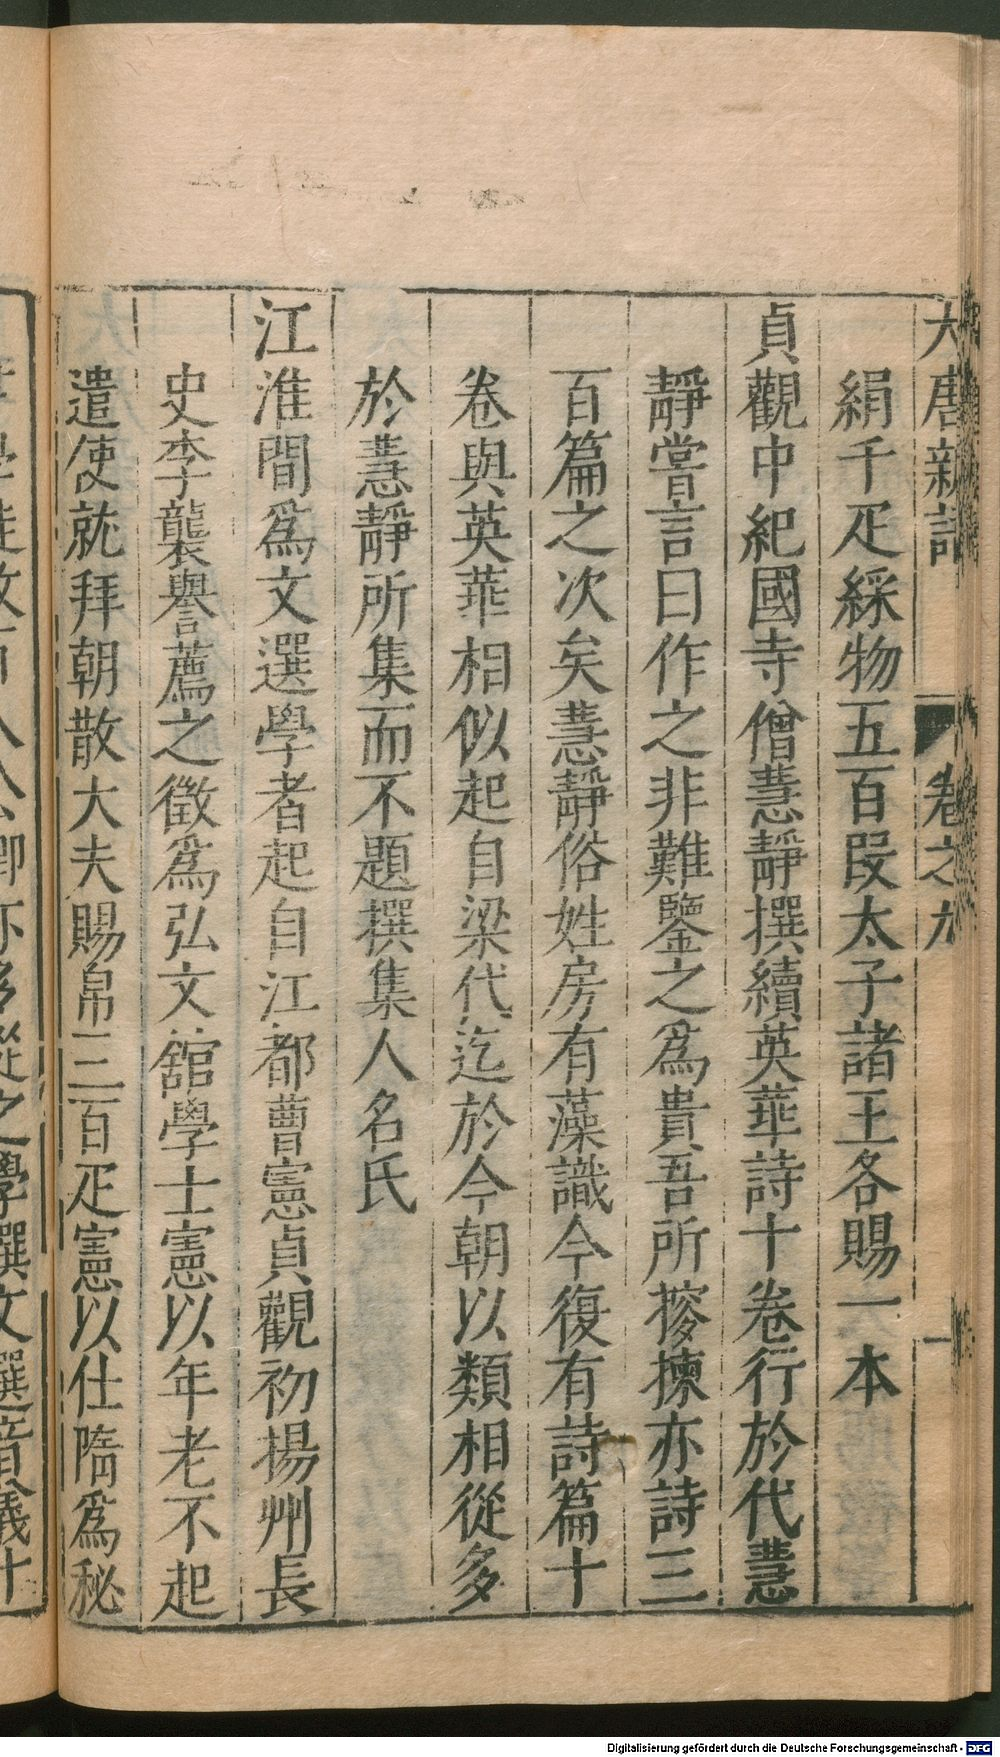 大唐新語 卷之九 一
絹千疋綵物五百段太子諸王各賜一本
貞觀中紀國寺僧慧靜撰續英華詩十卷行於代慧
靜嘗言曰作之非難鑒之爲貴吾所搜揀亦詩三
百篇之次矣慧靜俗姓房有藻識今復有詩篇十
卷與英華相似起自梁代迄於今朝以類相從多
於慧靜所集而不題撰集人名氏
江淮間爲文選學者起自江都曹憲貞觀初揚州長
史李襲譽薦之徵爲弘文舘學士憲以年老不起
遣使就拜朝散大夫賜帛三百疋憲以仕隋爲秘
之學撰文選音義十
Digitalisierung gefördert durch die Deutsche Forschungsgemeinschaft - DFG